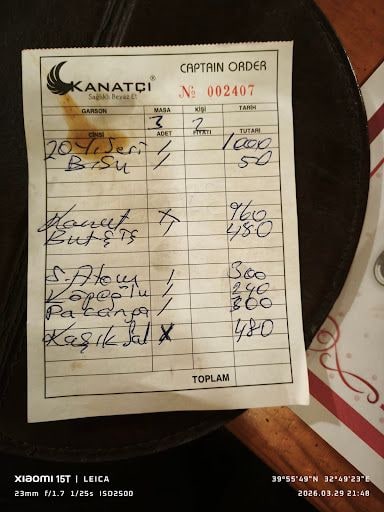 KANATÇI
Sağlıklı Beyaz Et
CAPTAIN ORDER
№ 002407
GARSON MASA KİŞİ TARİH
3 2
CİNSİ ADET FİYATI TUTARI
20 Yeni Seri / 1000
B. Su / 50
Kanat 960
But Şiş 480
S. Atom / 300
Köpoğlu / 240
Paçanga / 300
Kaşık Sal X 480
TOPLAM
XIAOMI 15T | LEICA
39°55'49"N 32°49'23"E
23mm f/1.7 1/25s ISO2500
2026.03.29 21:48